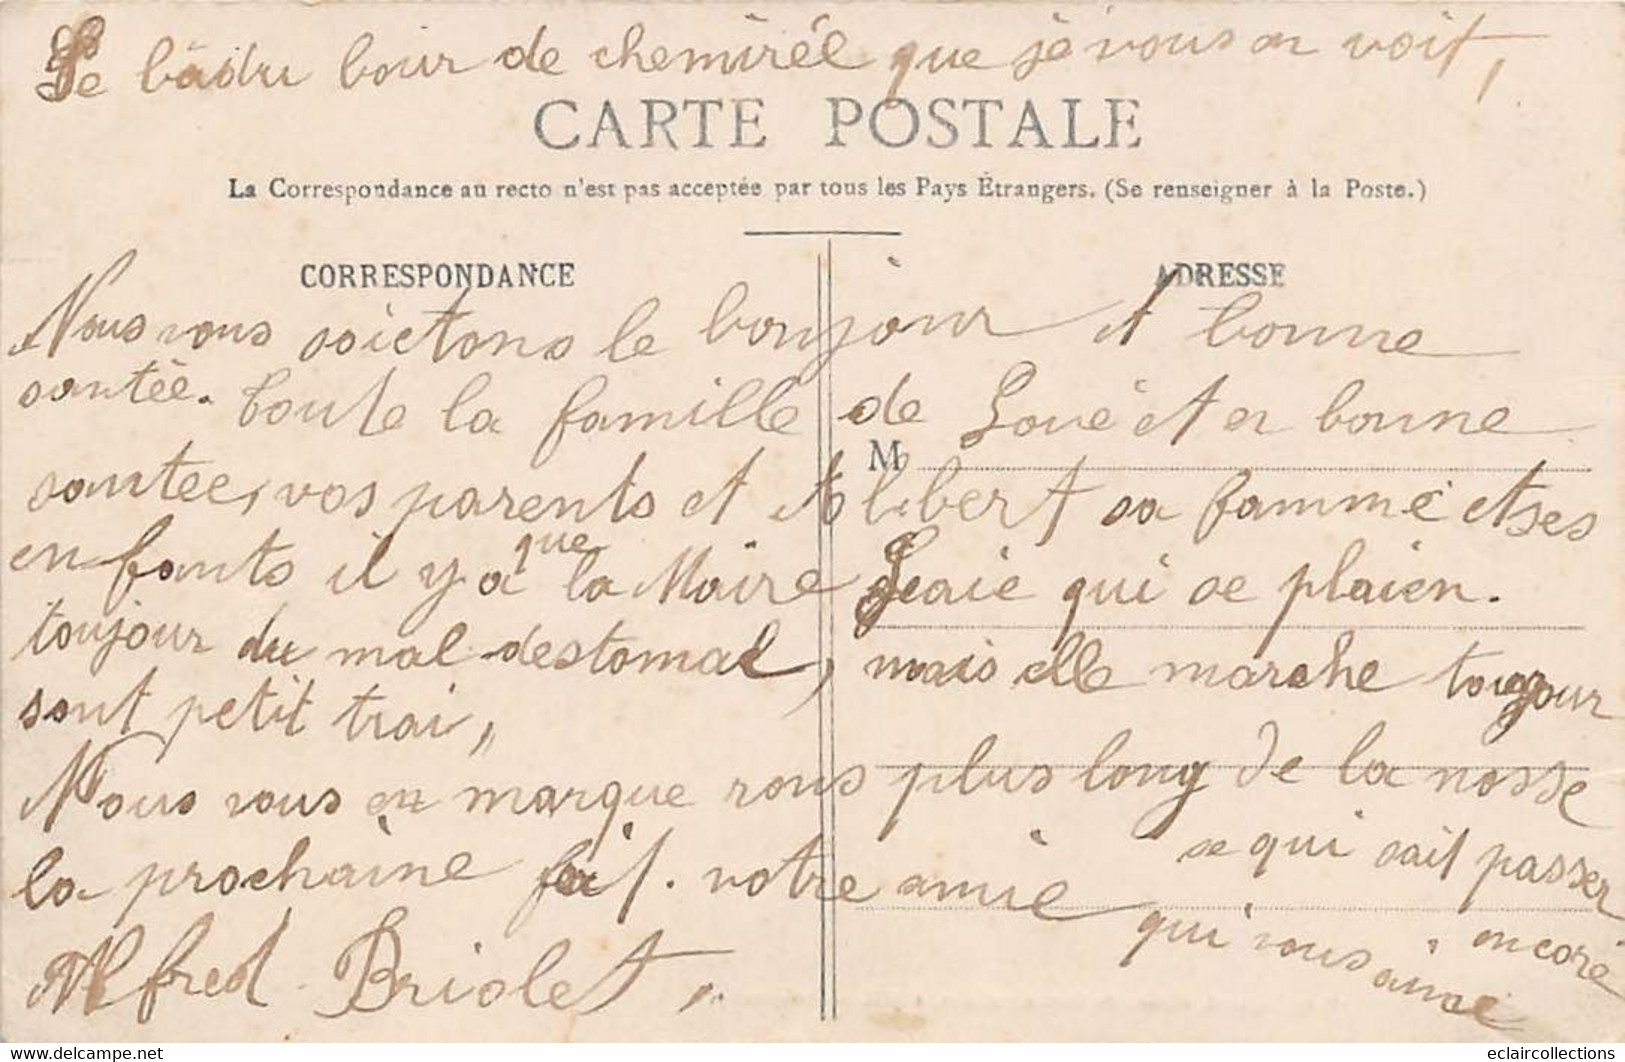 Se bâdu bour de chemirée que je vous en voit,
CARTE POSTALE
La Correspondance au recto n'est pas acceptée par tous les Pays Étrangers. (Se renseigner à la Poste.)
CORRESPONDANCE
ADRESSE
Nous vous soietons le bonjour et bonne
santée. toute la famille de Loué et en bonne
M
santee, vos parents et Alibert sa famme et ses
enfants il y a que la Maire qui se plaien.
toujour du mal destomac, mais elle marche toujour
sont petit trai,
Nous vous en marque rons plus long de la nosse
la prochaine fait. votre amie
se qui sait passer
qui vous aime encore
Alfred Briolet
eclaircollections